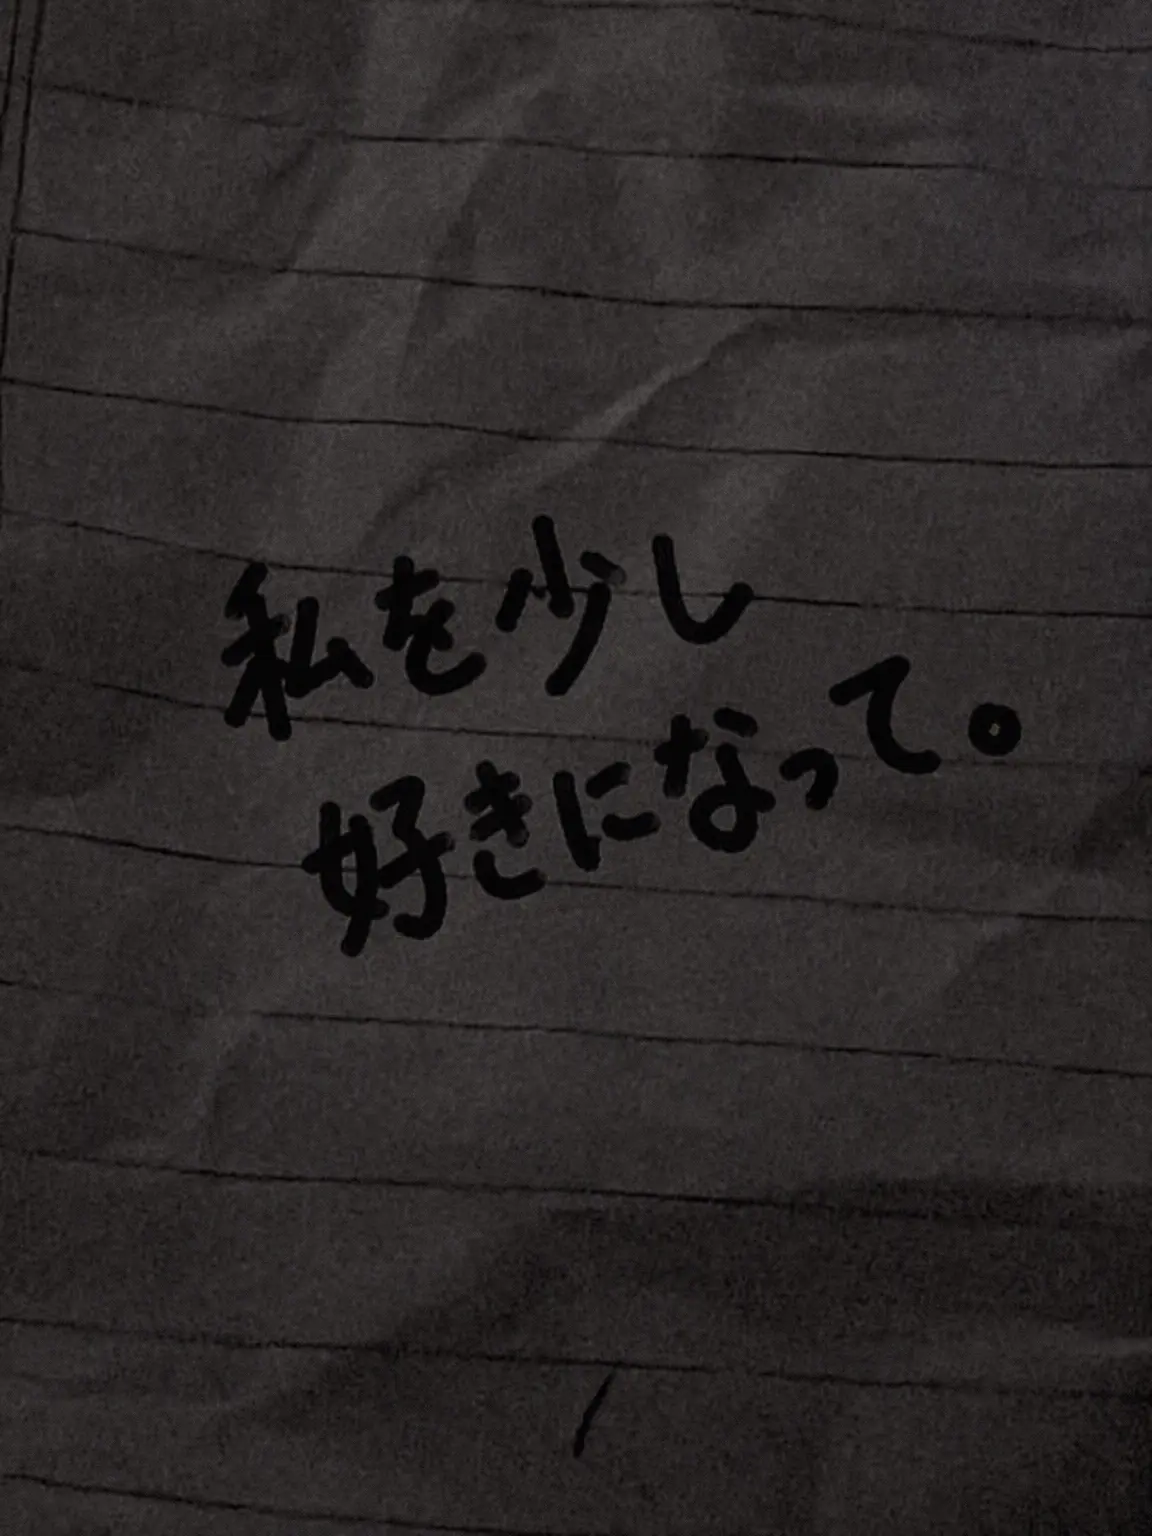 私を少し
好きになって。